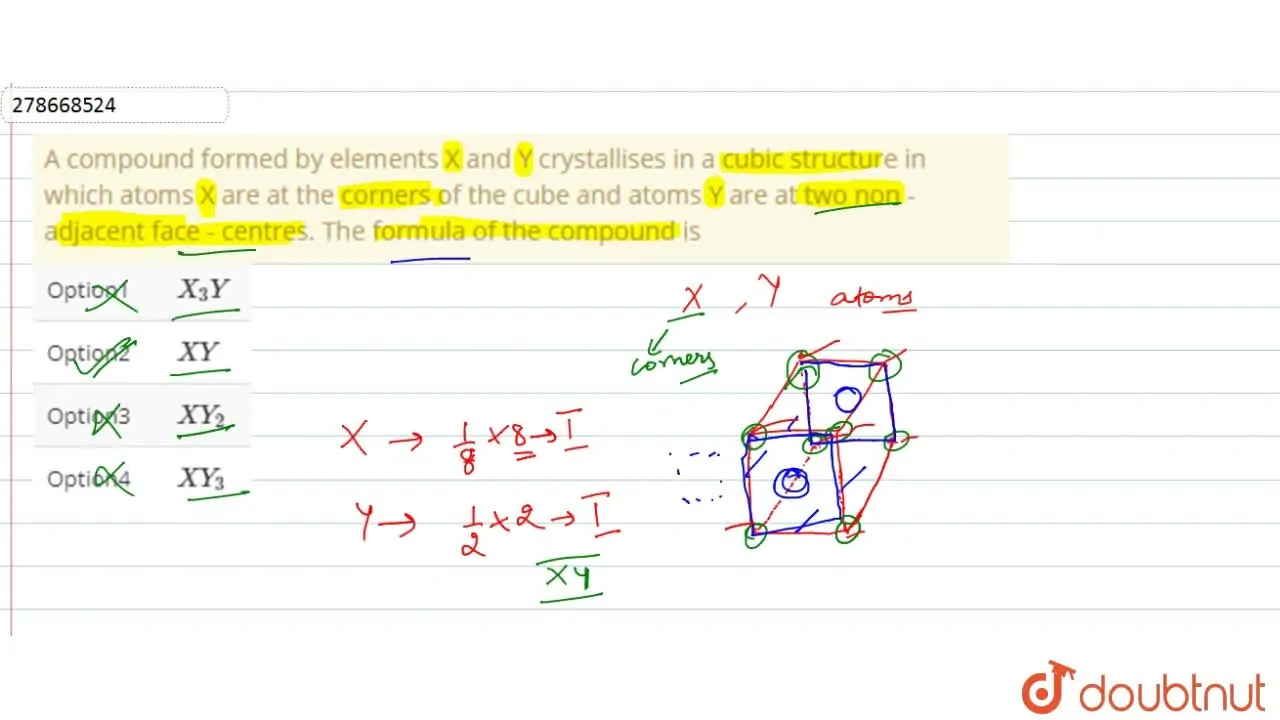 278668524
A compound formed by elements X and Y crystallises in a cubic structure in
which atoms X are at the corners of the cube and atoms Y are at two non -
adjacent face - centres. The formula of the compound is
Option1 X₃Y
Option2 XY
Option3 XY₂
Option4 XY₃
X , Y atoms
corners
X → 1/8 × 8 → I
Y → 1/2 × 2 → I
XY
doubtnut